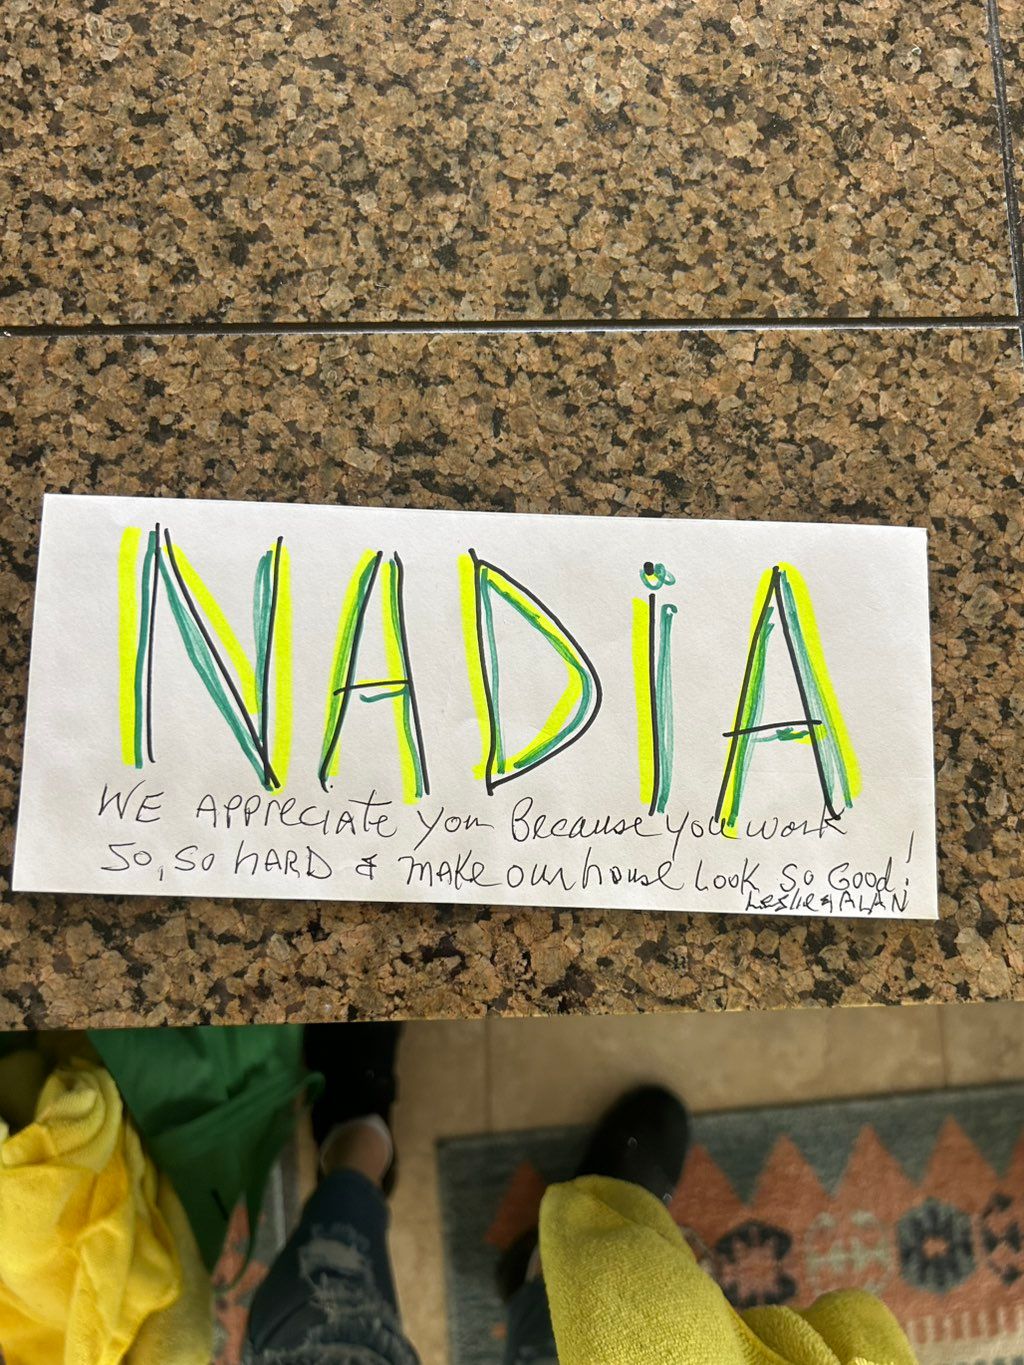 NADiA
WE APPreciAte you Because you work
So, So HARD & MAKe our house Look So Good!
Leslie & ALAN